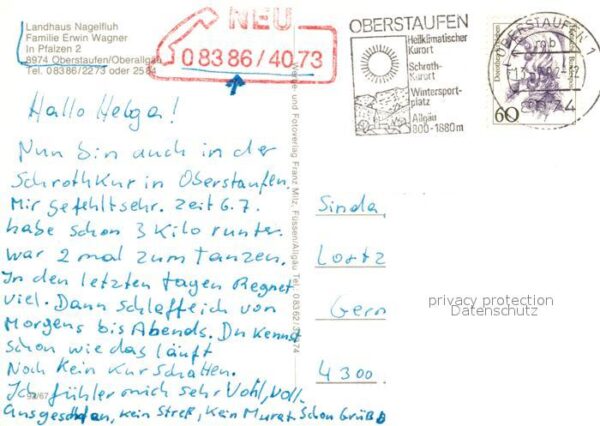 Landhaus Nagelfluh
Familie Erwin Wagner
In Pfalzen 2
8974 Oberstaufen/Oberallgäu
Tel. 08386/2273 oder 25
NEU
08386/4073
OBERSTAUFEN
Heilklimatischer
Kurort
Schroth-
Kurort
Wintersport-
platz
Allgäu
800-1880m
OBERSTAUFEN 1
mb
8974
60
Hallo Helga!
Nun bin auch in der
Schrothkur in Oberstaufen.
Mir gefehltsehr. Zeit 6.7.
habe schon 3 Kilo runter.
war 2 mal zum Tanzen.
In den letzten tagen Regnet
viel. Dann schlaffe ich von
Morgens bis Abends. Du Kennst
schon wie das läuft
Noch Kein Kurschatten.
Ich fühler mich sehr Vohl, voll.
Ausgeschlafen, kein Streß, Kein Murat. Schon Grüß
92/67
und Fotoverlag Franz Milz, Füssen/Allgäu Tel. 08362/
Sinda,
Lortz
Gern
4300
privacy protection
Datenschutz